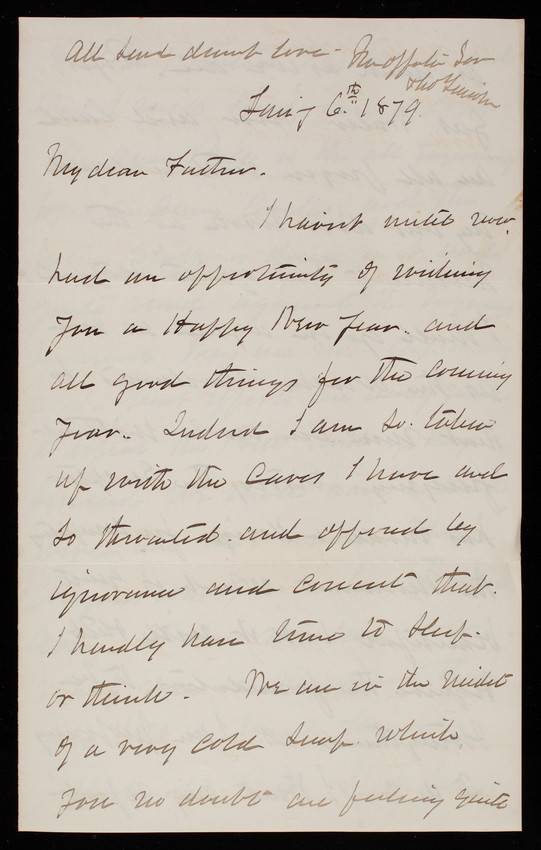 All send dearest love - Your affectn Son
Thos Lincoln
Jany 6th 1879.
My dear Father.
I havent until now
had an opportunity of wishing
you a Happy New Year. and
all good things for the coming
year. Indeed I am so taken
up with the cares I have and
so thwarted. and opposed by
ignorance and conceit that.
I hardly have time to sleep.
or think. We are in the midst
of a very cold snap. which
you no doubt are feeling quite